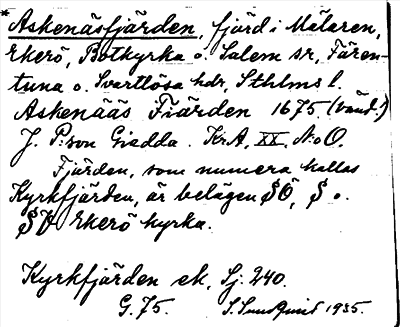 * Askenäsfjärden, fjärd i Mälaren,
Ekerö, Botkyrka o. Salem sr, Fären-
tuna o. Svartlösa hdr, Sthlms l.
Askenääs Fiärden 1675 (vänd!)
J. P:son Giedda. Kr.A, XX. N:o O.
Fjärden, som numera kallas
Kyrkfjärden, är belägen SÖ, S o.
SV Ekerö kyrka.
Kyrkfjärden ek, Sj. 240.
G. 75. S. Sundquist 1935.